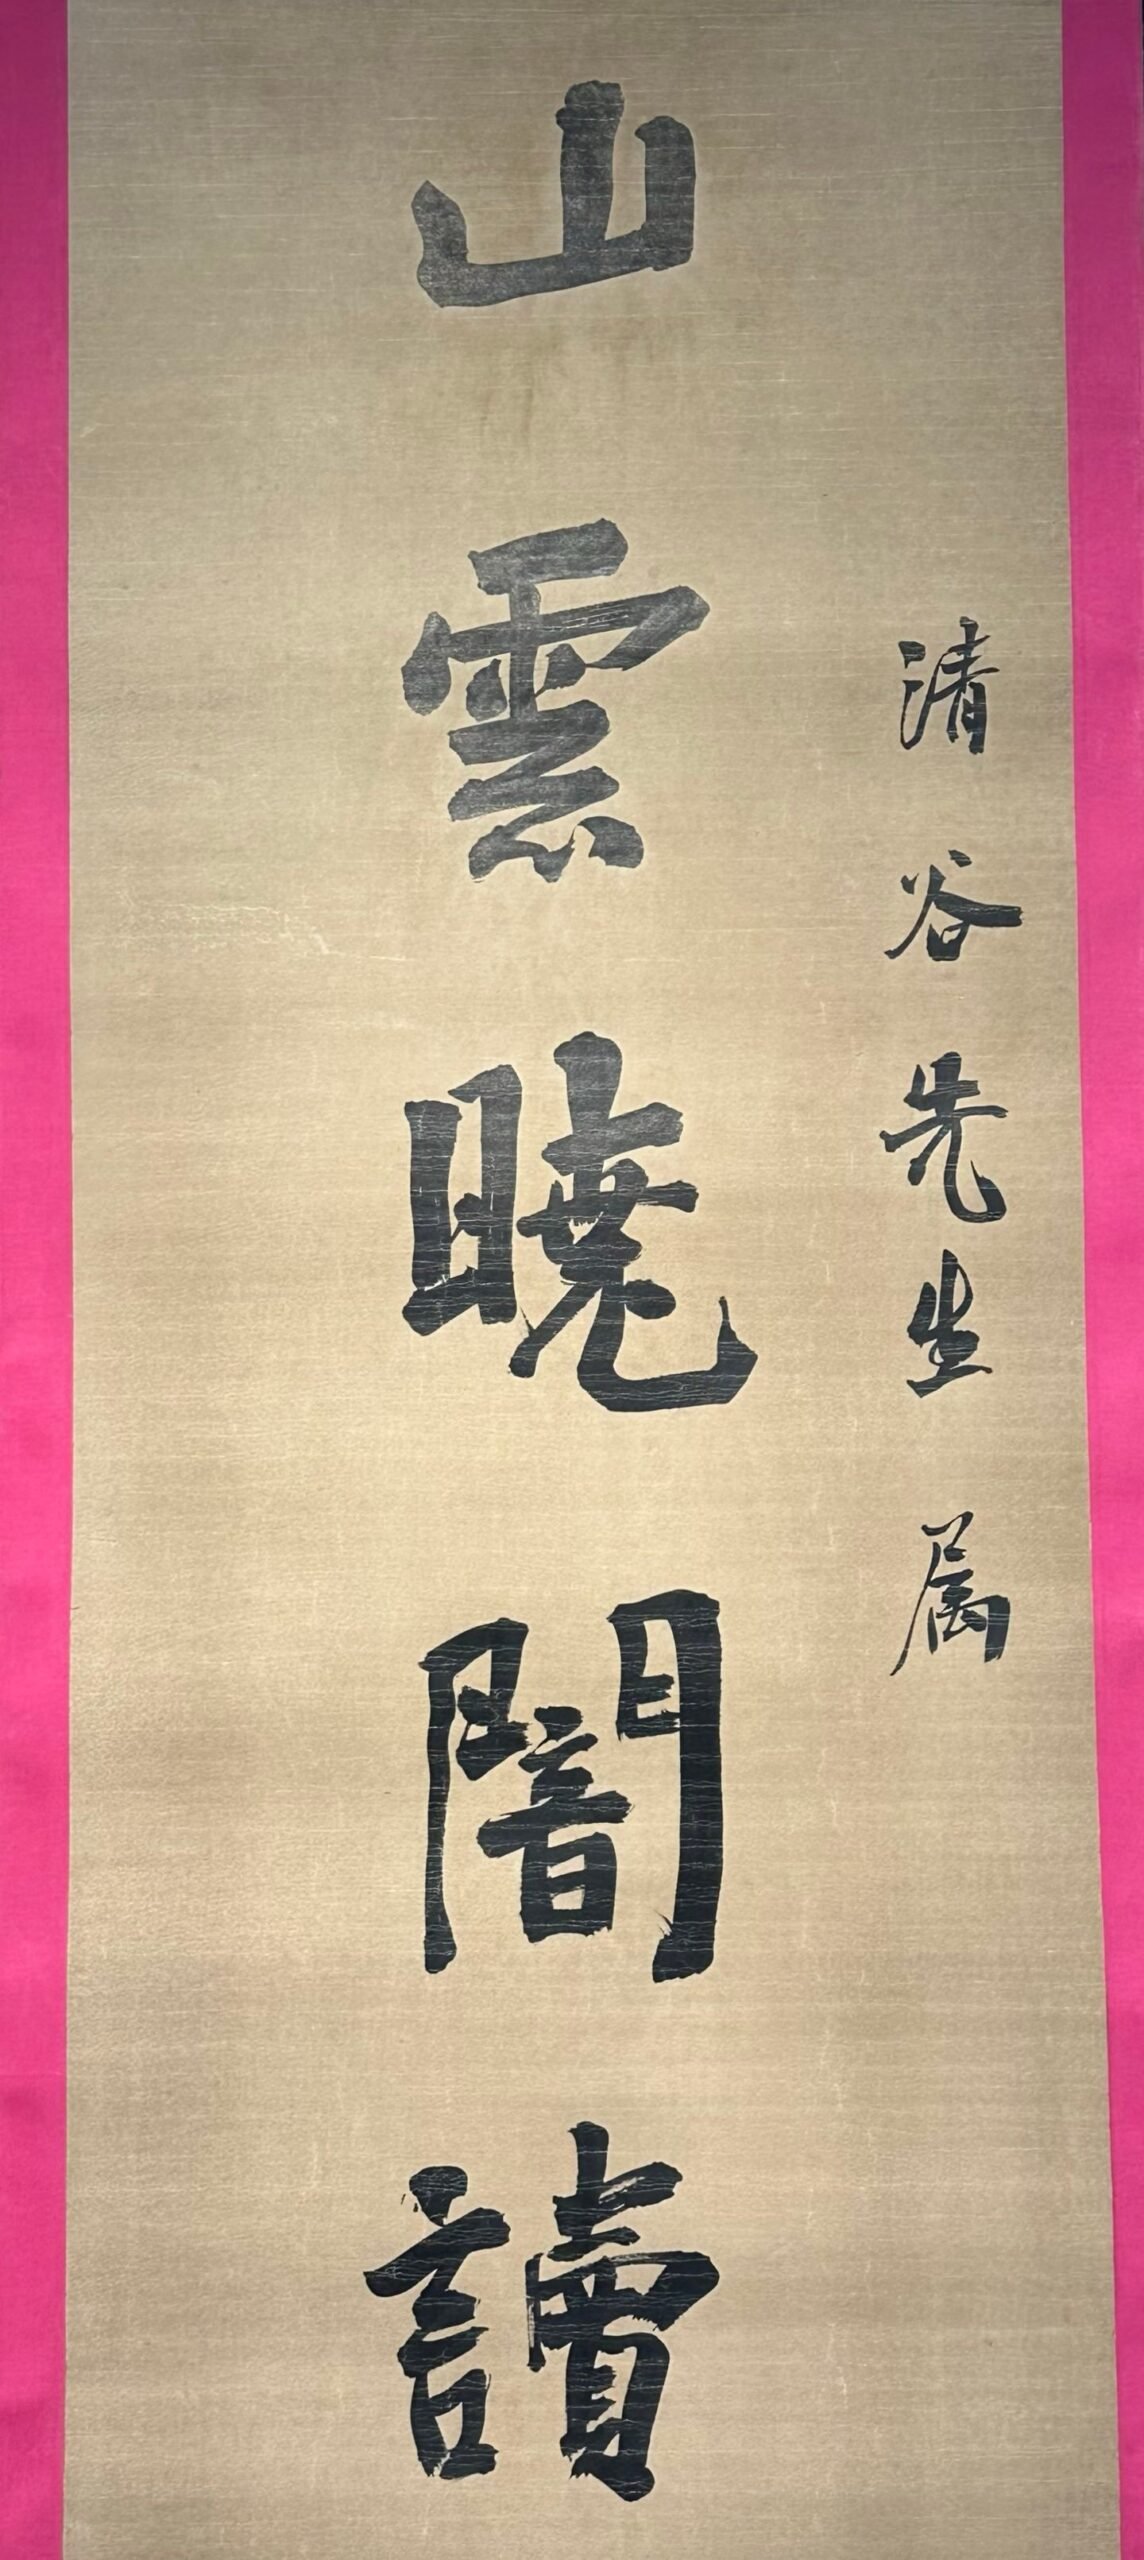 清谷先生属
山雲曉闇讀